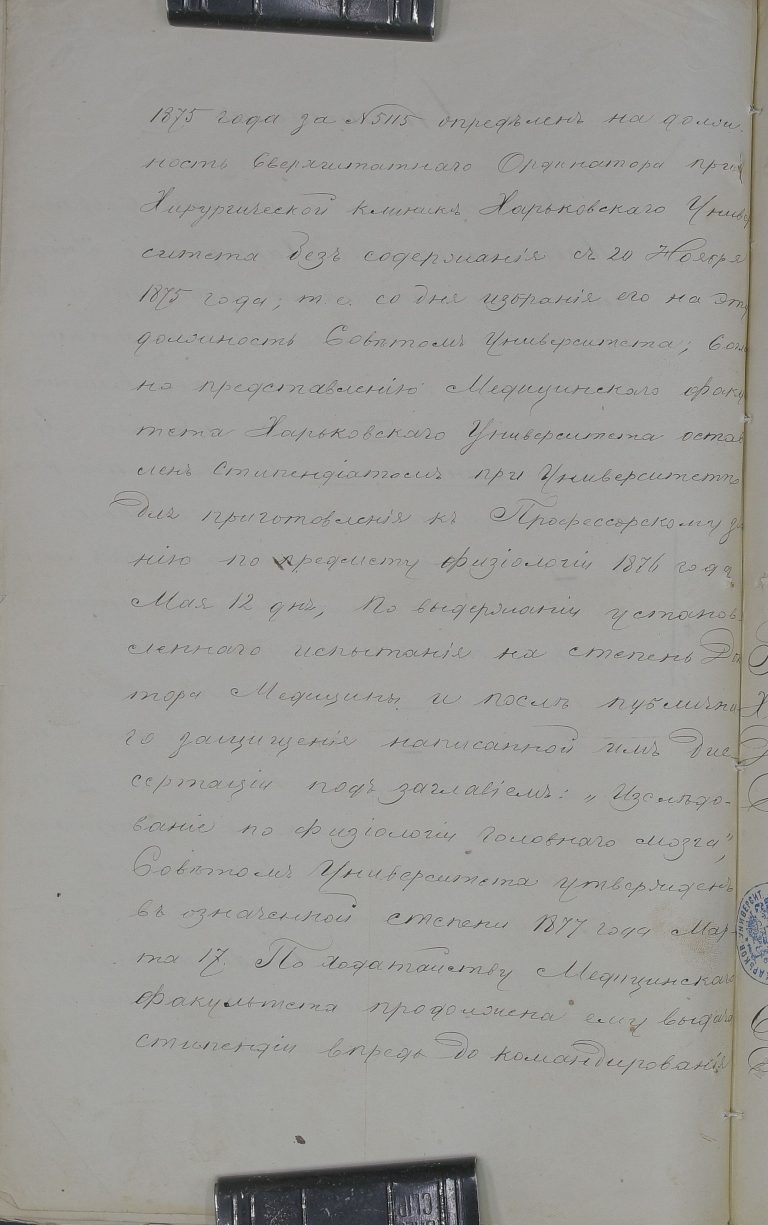 1875 года за №5115 опредѣленъ на долж-
ность Сверхштатнаго Ординатора при
Хирургической клиникѣ Харьковскаго Униве
ситета безъ содержанія съ 20 Ноября
1875 года; т. е. со дня избранія его на эту
должность Совѣтомъ Университета; Согла
но представленію Медицинскаго факу
тета Харьковскаго Университета остав
ленъ Стипендіатомъ при Университетѣ
для приготовленія къ Профессорскому зв
нію по предмету физіологіи 1876 года
Мая 12 дня, По выдержаніи установ-
леннаго испытанія на степень До
тора Медицины и послѣ публично-
го защищенія написанной имъ Дис-
сертаціи подъ заглавіемъ: „Изслѣдо-
ваніе по физіологіи головнаго мозга",
Совѣтомъ Университета утвержденъ
въ означенной степени 1877 года Мар-
та 17. По ходатайству Медицинскаго
Факультета продолжена ему выдача
стипендіи впредь до командированія